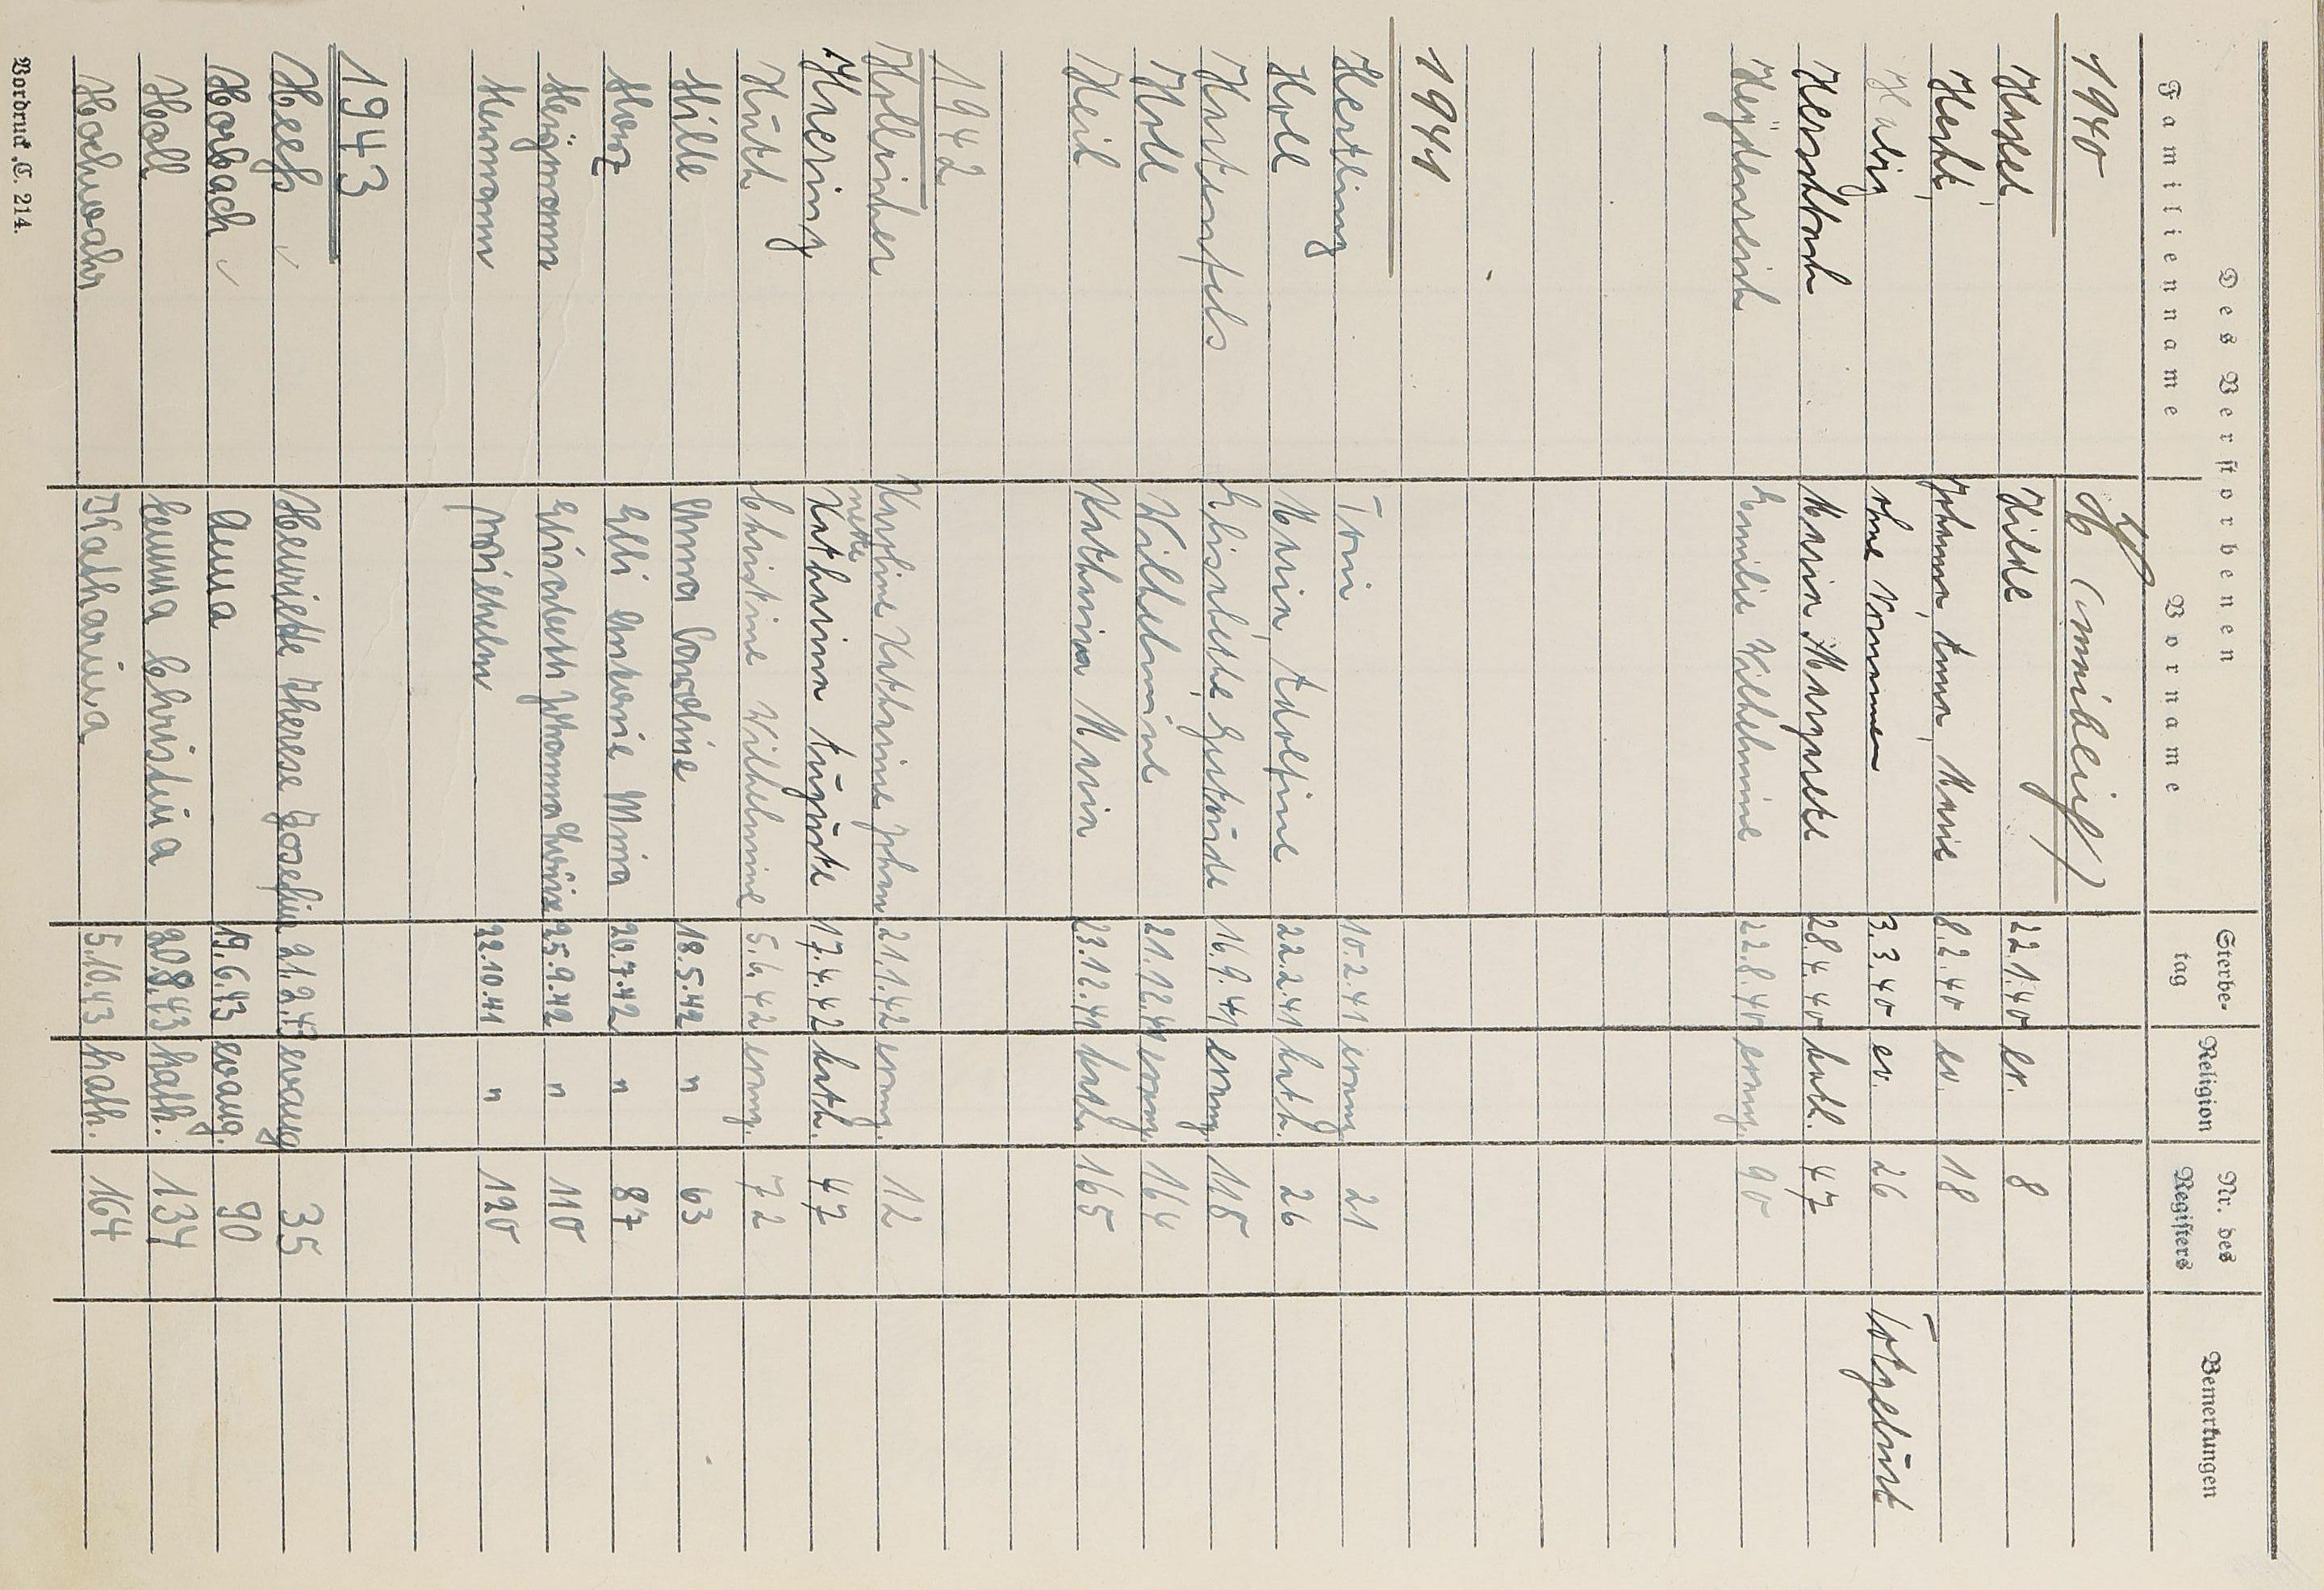 Des Verstorbenen
Familienname Vorname Sterbe- tag Religion Nr. des Registers Bemerkungen
1940 H (weiblich)
Hassel Hilde 22.1.40 ev. 8
Herht Johanna Anna Marie 8.2.40 ev. 18
ohne Vornamen 3.3.40 ev. 26 Totgeburt
Maria Margarete 28.4.40 kath. 47
Heydenreich Emilie Wilhelmine 22.8.40 evang. 90
1941
Hertling Toni 10.2.41 evang 21
Holl Maria Adolfine 22.2.41 kath. 26
Hartenfels Elisabethe Gertrude 16.9.41 evang 118
Holl Wilhelmine 21.12.41 evang. 164
Heil Katharina Maria 23.12.41 kath. 165
1942
Karoline Katharine Johan 21.1.42 evang. 12
nette
Haering Katharina Auguste 17.4.42 kath. 47
Huth Christine Wilhelmine 5.6.42 evang. 72
Hille Anna Caroline 18.5.42 " 63
Herz Elli Antonie Minna 20.7.42 " 87
Elisabeth Johanna Luise 25.9.42 " 110
Hermann Wilhelm 22.10.41 " 120
1943
Heeß Henriette Therese Josefin 21.2.43 evang 35
Horbach Anna 19.6.43 evang. 90
Holl Emma Christina 20.8.43 kath. 134
Hochwahr Katharina 5.10.43 kath. 164
Vordruck „C. 214.